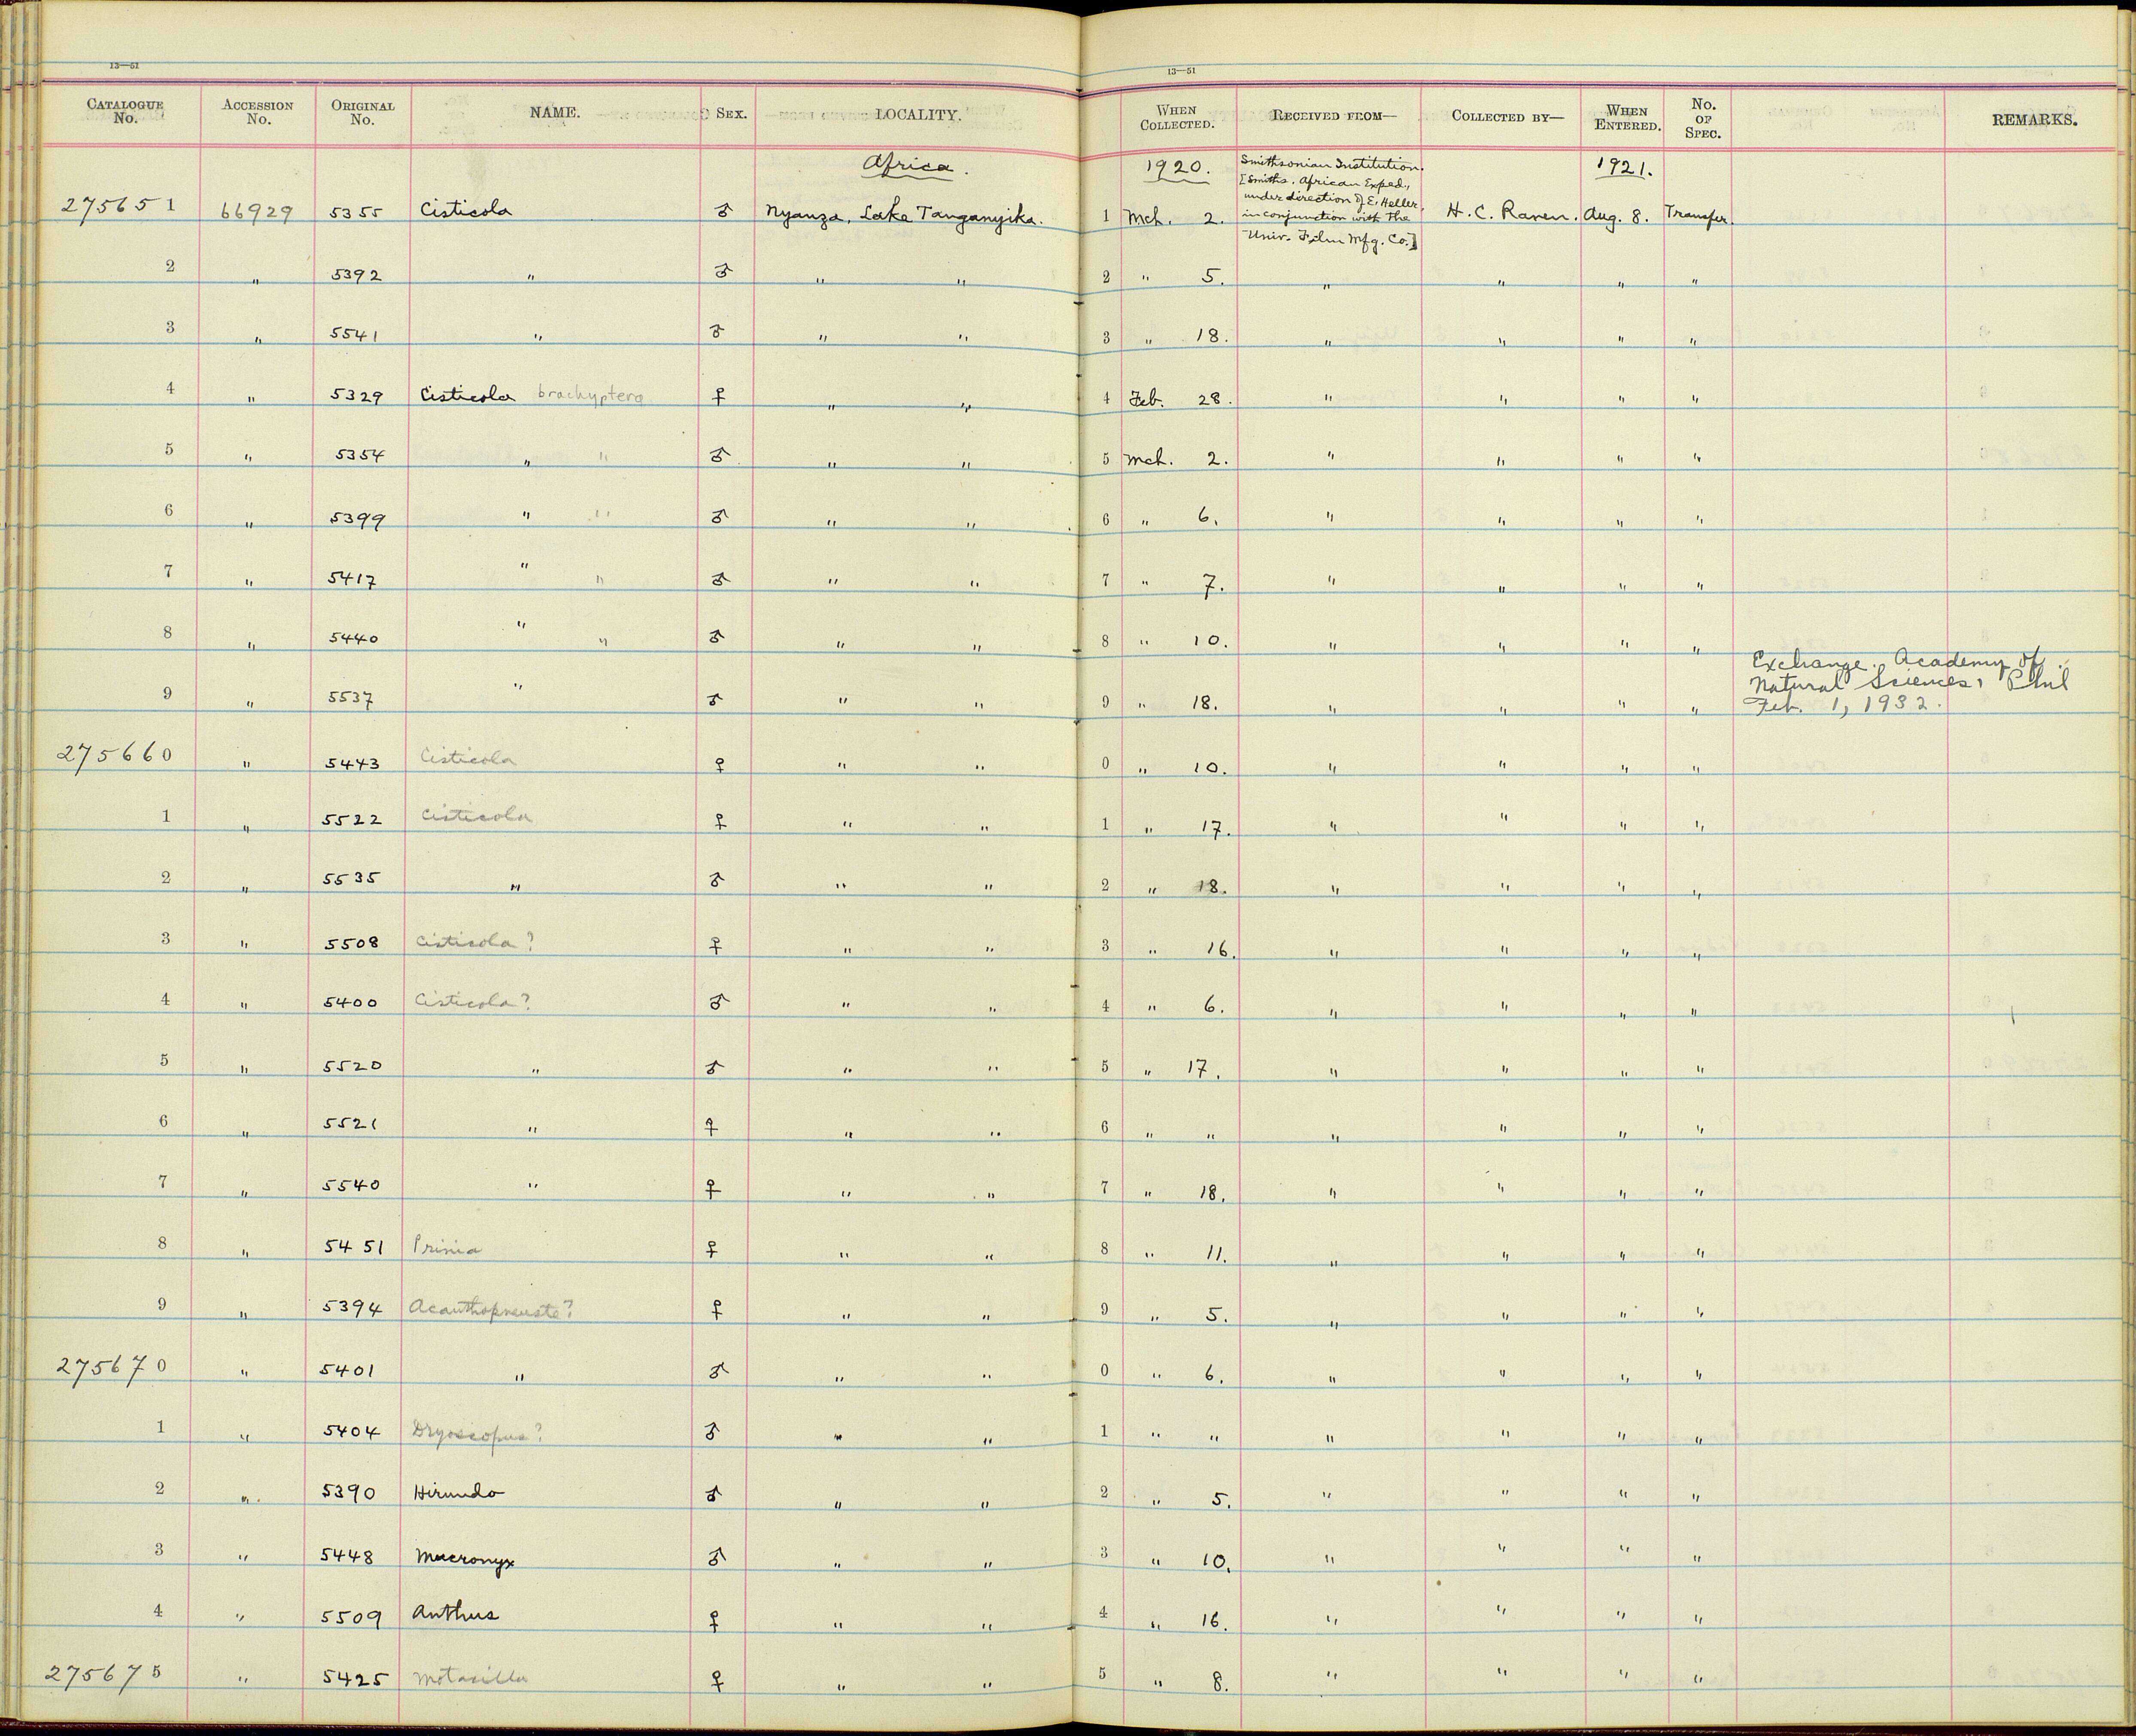 13—51
13—51
CATALOGUE No. ACCESSION No. ORIGINAL No. NAME. SEX. LOCALITY. WHEN COLLECTED. RECEIVED FROM— COLLECTED BY— WHEN ENTERED. No. OF SPEC. REMARKS.
Africa. 1920. Smithsonian Institution. 1921.
[Smiths. African Exped.,
under direction of E. Heller,
275651 66929 5355 Cisticola ♂ Nyanza, Lake Tanganyika. 1 Mch. 2. in conjunction with the H. C. Raven. Aug. 8. Transfer.
Univ. Film Mfg. Co.]
2 " 5392 " ♂ " " 2 " 5. " " " "
3 " 5541 " ♂ " " 3 " 18. " " " "
4 " 5329 Cisticola brachyptera ♀ " " 4 Feb. 28. " " " "
5 " 5354 " " ♂ " " 5 Mch. 2. " " " "
6 " 5399 " " ♂ " " 6 " 6. " " " "
7 " 5417 " " ♂ " " 7 " 7. " " " "
8 " 5440 " " ♂ " " 8 " 10. " " " "
Exchange. Academy of
Natural Sciences, Phil
9 " 5537 " ♂ " " 9 " 18. " " " " Feb. 1, 1932.
275660 " 5443 Cisticola ♀ " " 0 " 10. " " " "
1 " 5522 Cisticola ♀ " " 1 " 17. " " " "
2 " 5535 " ♂ " " 2 " 18. " " " "
3 " 5508 Cisticola? ♀ " " 3 " 16. " " " "
4 " 5400 Cisticola? ♂ " " 4 " 6. " " " "
5 " 5520 " ♂ " " 5 " 17. " " " "
6 " 5521 " ♀ " " 6 " " " " " "
7 " 5540 " ♀ " " 7 " 18. " " " "
8 " 5451 Prinia ♀ " " 8 " 11. " " " "
9 " 5394 Acanthopneuste? ♀ " " 9 " 5. " " " "
275670 " 5401 " ♂ " " 0 " 6. " " " "
1 " 5404 Dryoscopus? ♂ " " 1 " " " " " "
2 " 5390 Hirundo ♂ " " 2 " 5. " " " "
3 " 5448 Macronyx ♂ " " 3 " 10. " " " "
4 " 5509 Anthus ♀ " " 4 " 16. " " " "
275675 " 5425 Motacilla ♀ " " 5 " 8. " " " "